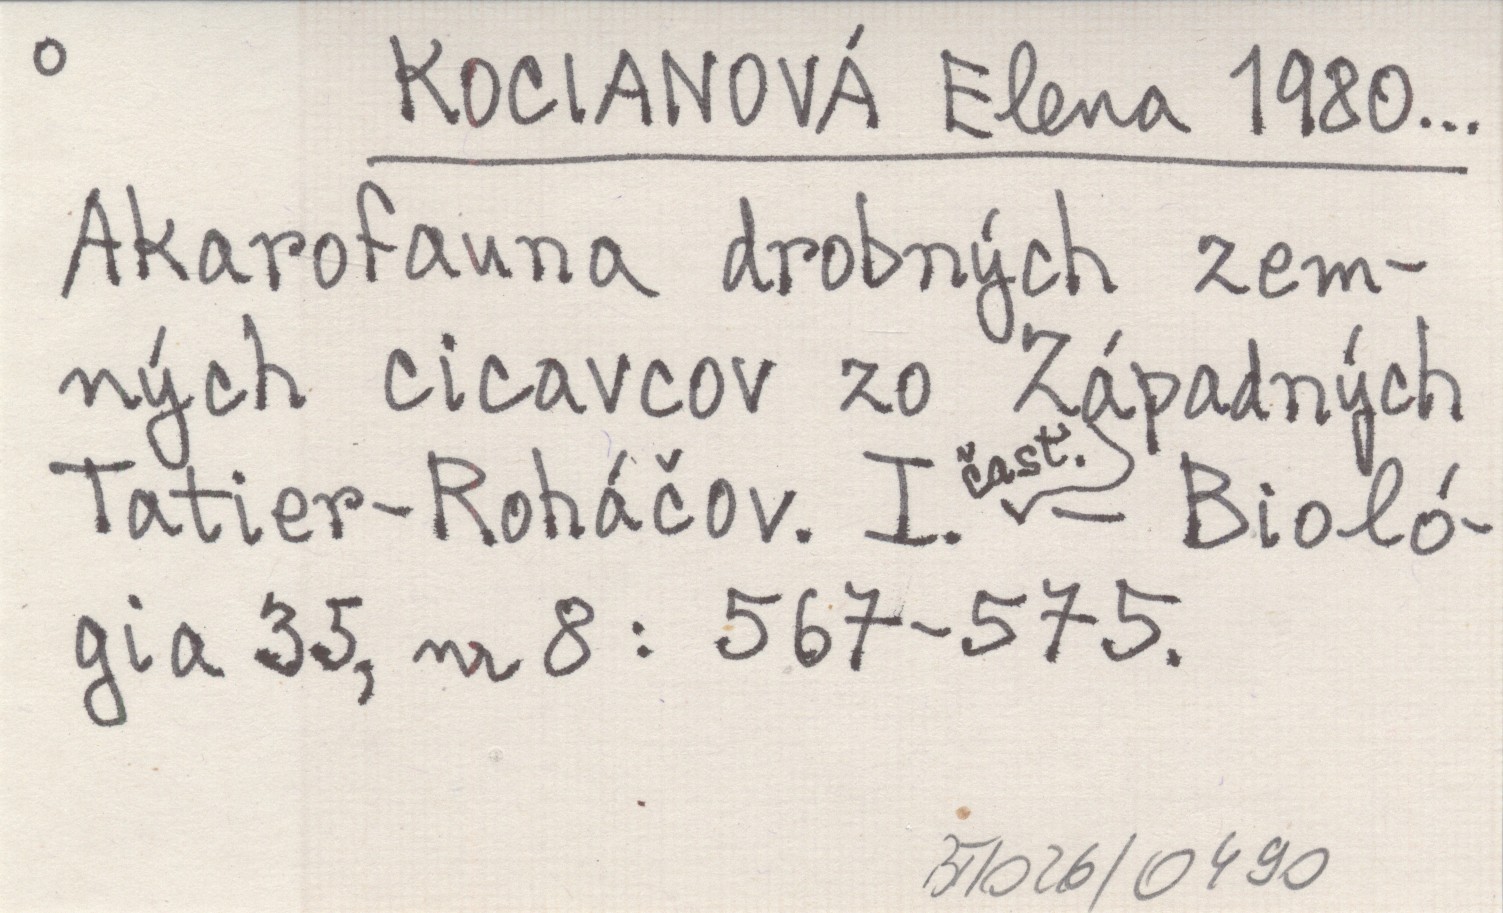 o KOCIANOVÁ Elena 1980...
Akarofauna drobných zem-
ných cicavcov zo Západných
Tatier-Roháčov. I. časť. – Bioló-
gia 35, nr 8 : 567-575.
/026/0490